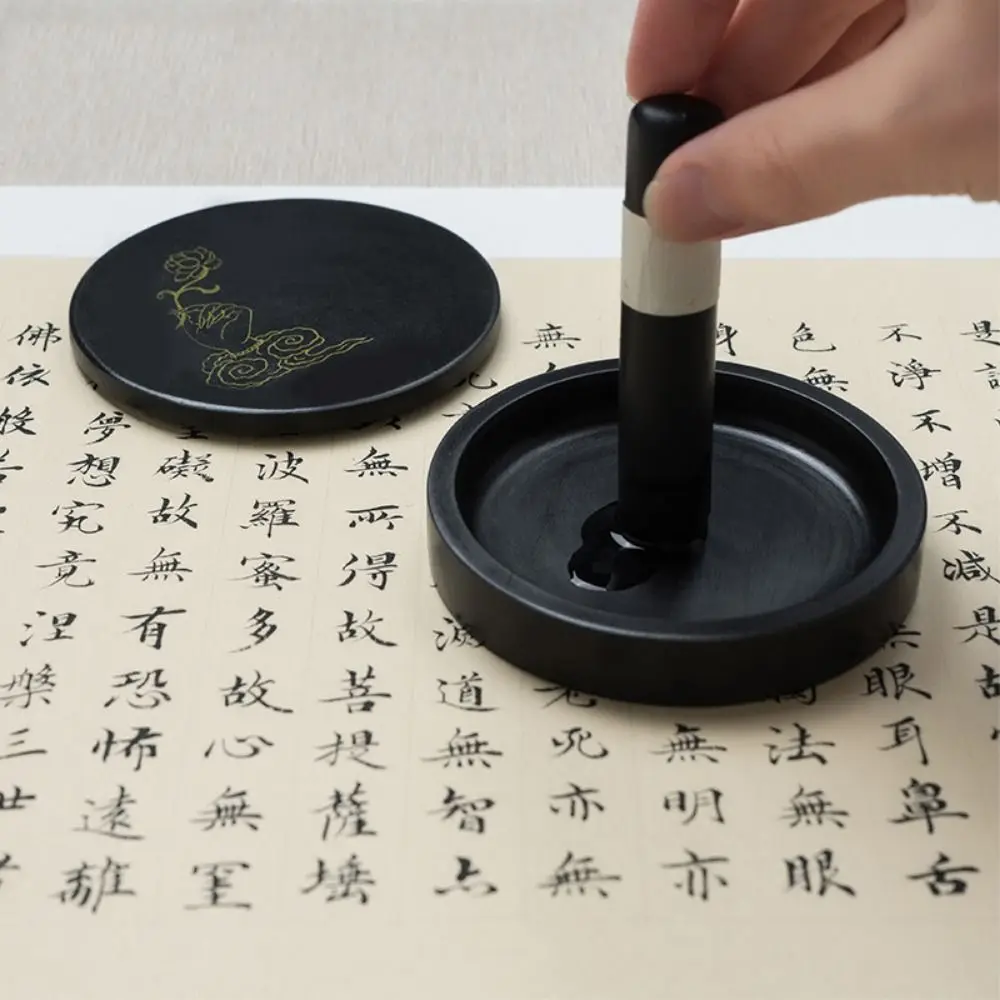 是
不淨不增不減是故
色無無眼耳鼻舌
身法無眼
無明亦
無老死亦無
滅道無智亦
無所得故菩提薩埵
波羅蜜多故心無罣
礙故無有恐怖遠離
夢想究竟涅槃三世
佛依般